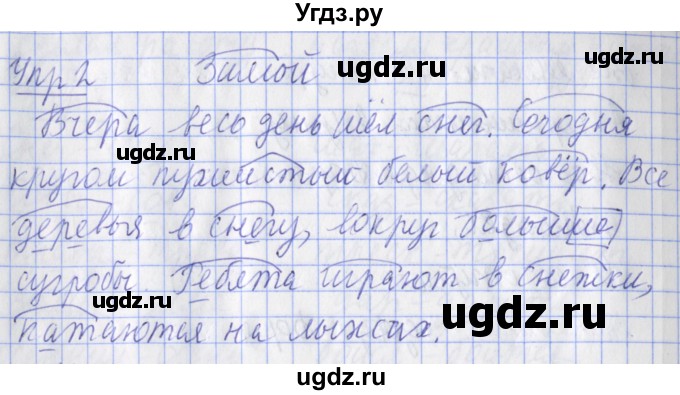 Угдз.ру
Упр 2 Зимой ugdz.ru ugdz.ru
Вчера весь день шёл снег. Сегодня
ugdz.ru ugdz.ru
кругом пушистый белый ковёр. Все
деревья в снегу, вокруг большие
ugdz.ru ugdz.ru
сугробы. Ребята играют в снежки,
ugdz.ru ugdz.ru
катаются на лыжах.
ugdz.ru